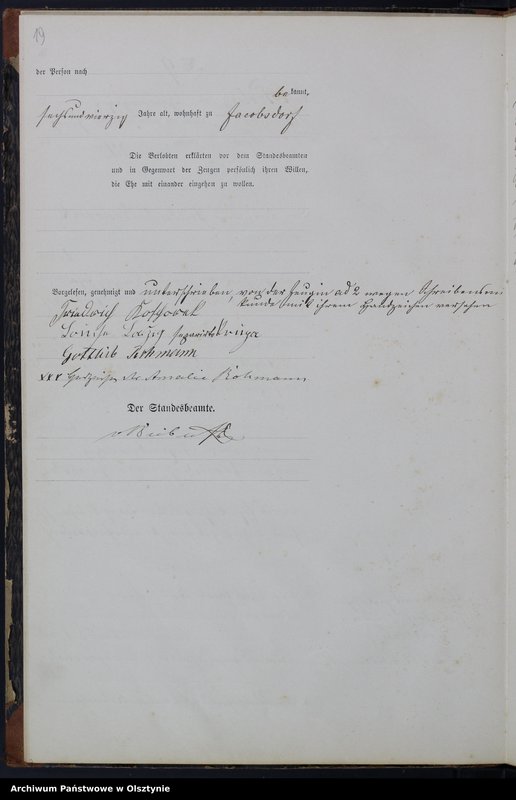 19
der Person nach
be kannt,
sechsundvierzig Jahre alt, wohnhaft zu Jacobsdorf
Die Verlobten erklärten vor dem Standesbeamten
und in Gegenwart der Zeugen persönlich ihren Willen,
die Ehe mit einander eingehen zu wollen.
Vorgelesen, genehmigt und unterschrieben, von der Zeugin ad 2 wegen Schreibensun
kunde mit ihrem Handzeichen versehen
Friedrich
Louise
Gottlieb Rohmann
xxx Handzeichen der Amalie Rohmann
Der Standesbeamte.
Archiwum Państwowe w Olsztynie